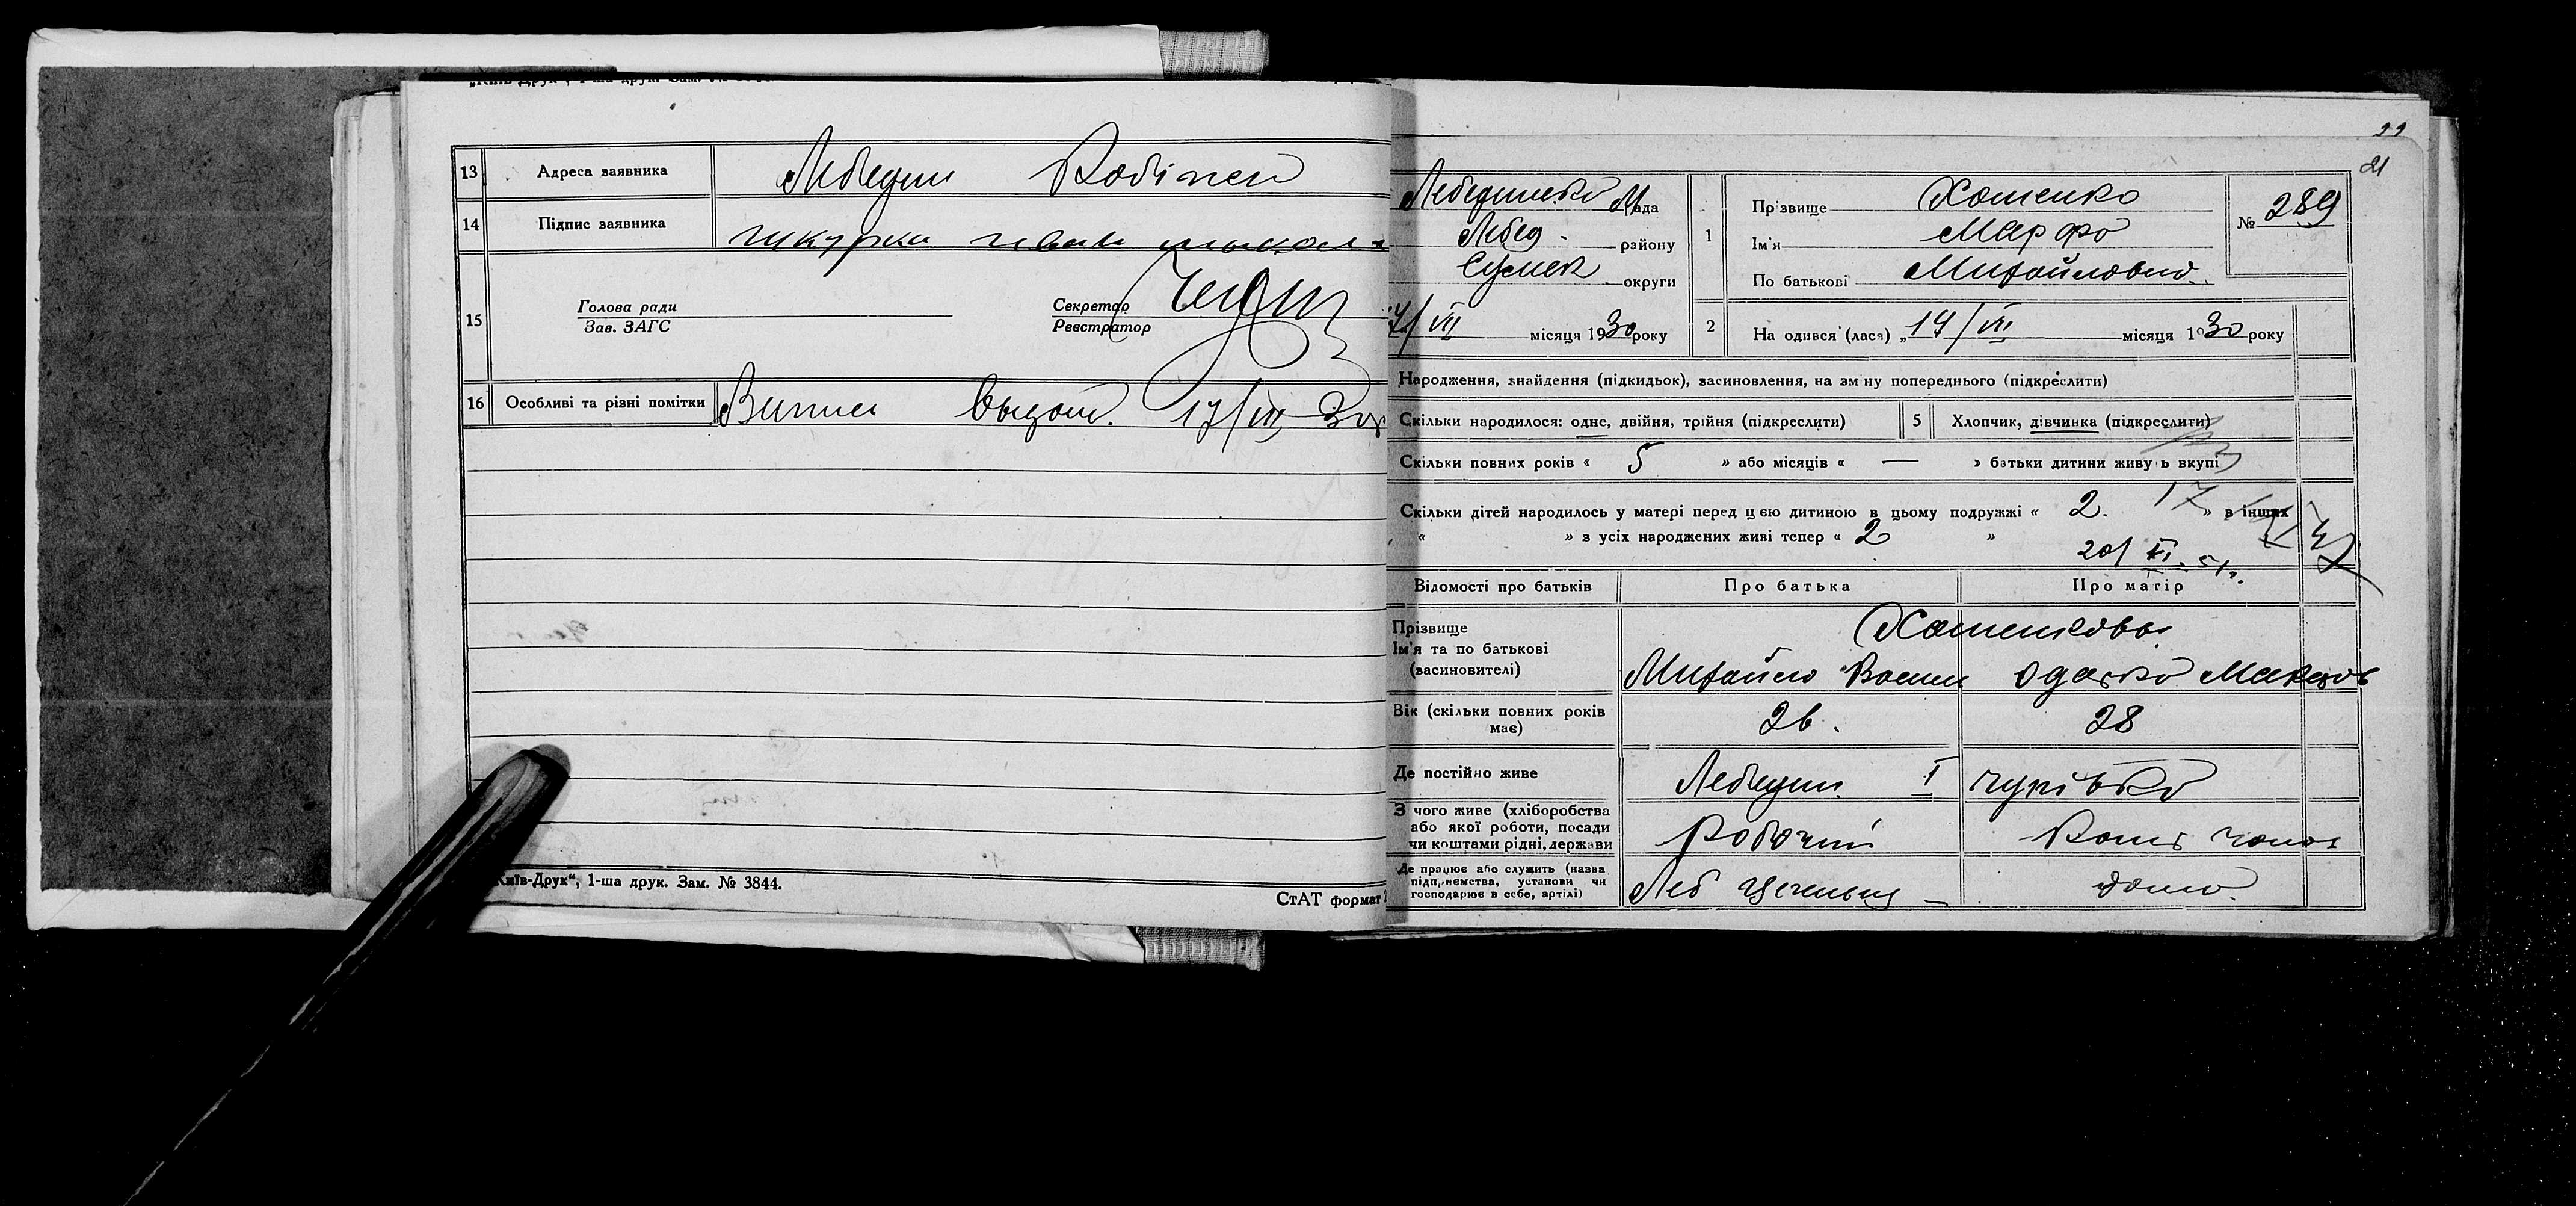 13 Адреса заявника Лебедин
14 Підпис заявника шкурка иван
15 Голова ради
Зав. ЗАГС
Секретар
Реєстратор
16 Особливі та різні помітки Випись 17/VII 30
Київ-Друк“, 1-ша друк. Зам. № 3844.
СтАТ формат
21
Лебединська М рада
Лебед. району
Сумск округи
1 Прізвище Хоменко
Ім'я Марфа
По батькові Михайловна
№ 289
/VII місяця 1930 року
2 На одився (лася) „14/VII місяця 1930 року
Народження, знайдення (підкидьок), засиновлення, на зміну попереднього (підкреслити)
Скільки народилося: одне, двійня, трійня (підкреслити) 5 Хлопчик, дівчинка (підкреслити)
Скільки повних років « 5 » або місяців « — » батьки дитини живуть вкупі
Скільки дітей народилось у матері перед цією дитиною в цьому подружжі « 2. » в інших
« » з усіх народжених живі тепер « 2 »
20/XI.51г.
Відомості про батьків Про батька Про матір
Прізвище
Ім'я та по батькові
(засиновителі)
Хоменковы
Михайло Васил Одарка Максим
Вік (скільки повних років має) 26. 28
Де постійно живе Лебедин I
З чого живе (хліборобства
або якої роботи, посади
чи коштами рідні, держави
Робочий
Де працює або служить (назва
підприємства, установи чи
господарює в себе, артілі)
Леб — дома